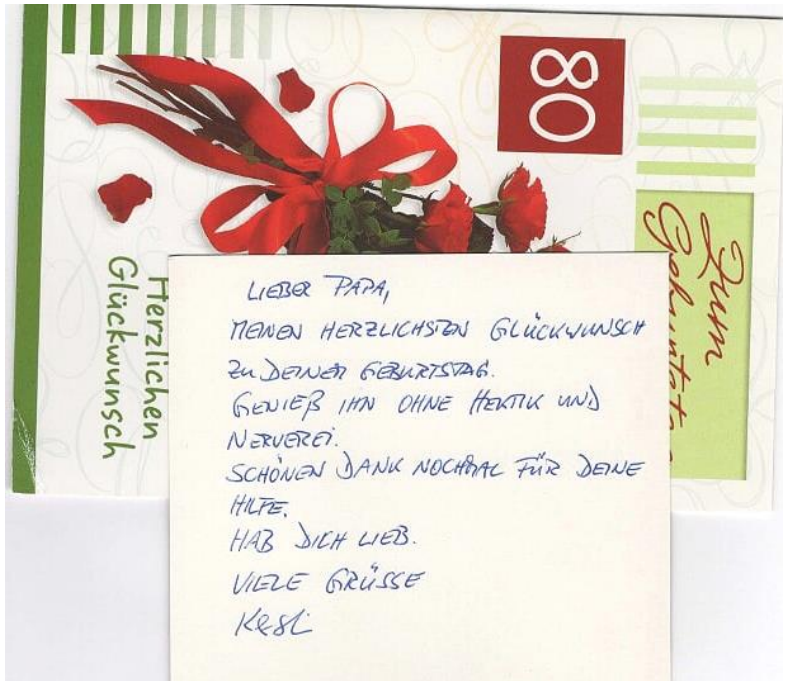 80
Zum
Geburtsta
Herzlichen
Glückwunsch
LIEBER PAPA,
MEINEN HERZLICHSTEN GLÜCKWUNSCH
ZU DEINEN GEBURTSTAG.
GENIEß IHN OHNE HEKTIK UND
NERVEREI.
SCHÖNEN DANK NOCHMAL FÜR DEINE
HILFE.
HAB DICH LIEB.
VIELE GRÜSSE